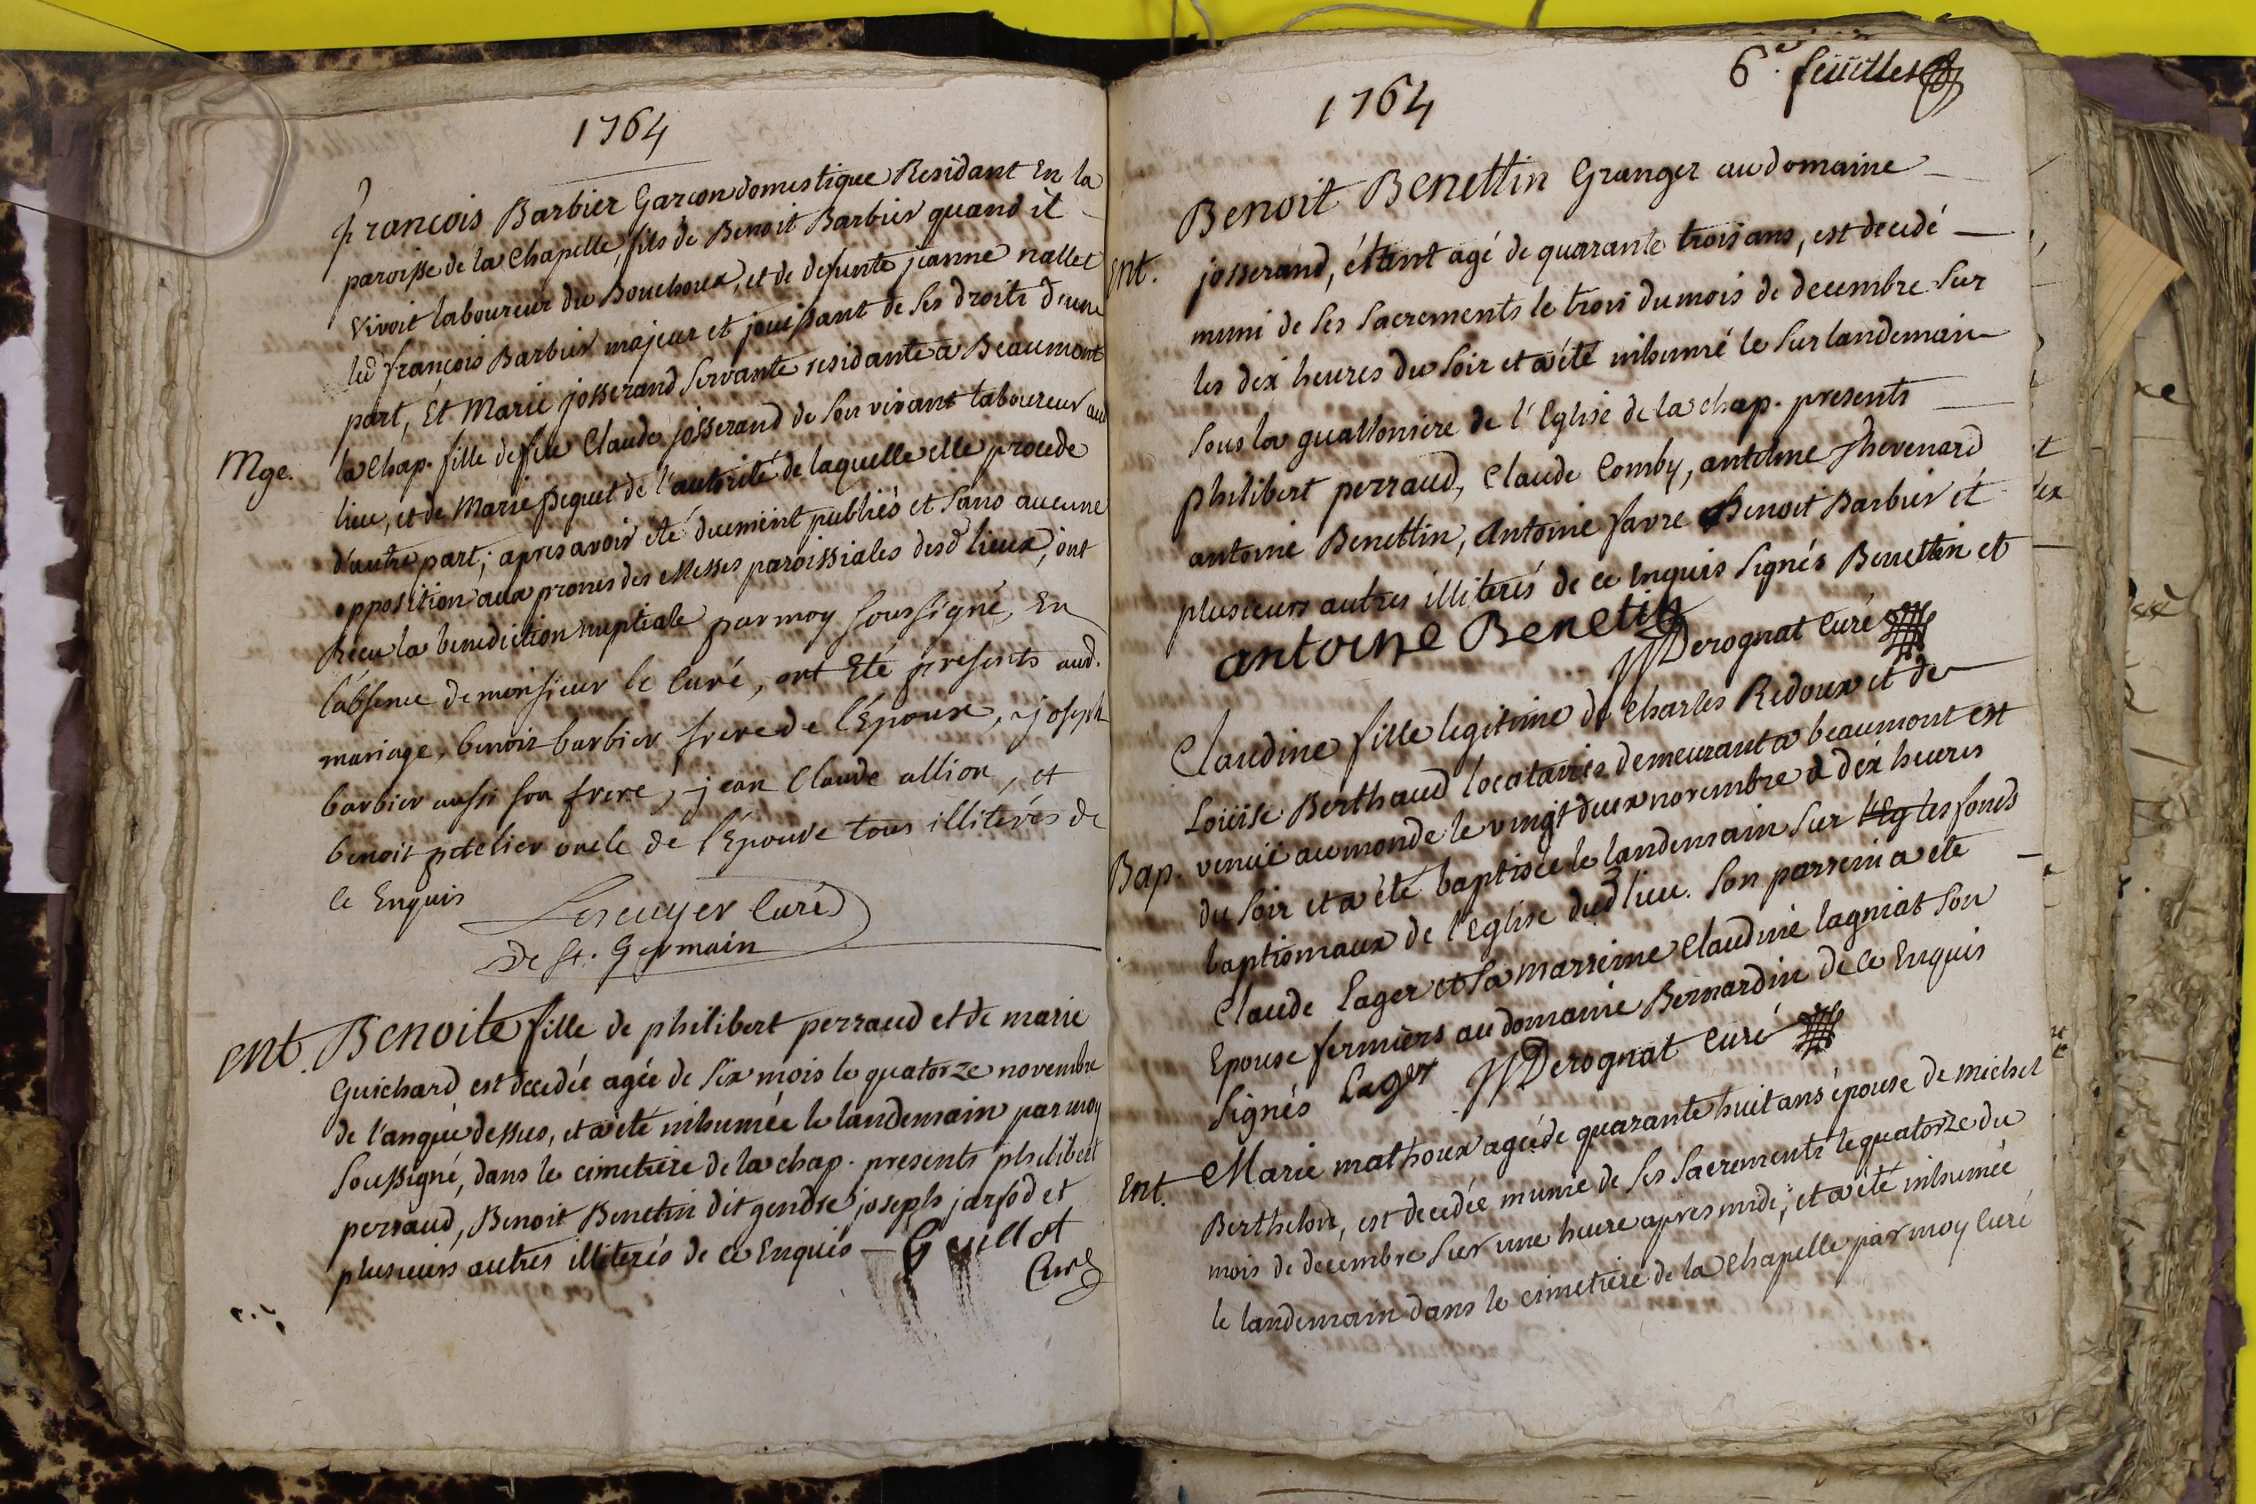 1764
françois Barbier Garcon domestique Residant En la
paroisse de la Chapelle, fils de Benoit Barbier quand il
vivoit laboureur du Bouchoux, et de defunte jeanne nallet
led françois Barbier majeur et jouissant de ses droits d'une
part, Et Marie josserand servante residante a Beaumont
Mge. la Chap. fille de feu Claude josserand de son vivant laboureur aud
lieu, et de Marie pequet de l'autorité de laquelle elle procede
d'autre part; apres avoir été duement publiés et sans aucune
opposition aux prones des Messes paroissiales desd lieux, ont
Recu la benediction nuptiale par moy soussigné, En
l'absence de monsieur le Curé, ont Eté presents aud.
mariage, benoit barbier frere de l'Epoux, joseph
barbier aussi son frere, jean Claude allion, et
benoit petelier oncle de l'Epouse tous illiterés de
ce Enquis
Lescuyer Curé
de St. Germain
Ent. Benoite fille de philibert perraud et de marie
Guichard est decedée agée de six mois le quatorze novembre
de l'an que dessus, et a été inhumée le landemain par moy
soussigné, dans le cimetiere de la chap. presents philibert
perraud, Benoit Benetin dit gendre joseph jarsod et
plusieurs autres illiterés de ce Enquis Guillot
Curé
6e. feuillet
1764
Benoit Benettin Granger au domaine
Ent. josserand, étant agé de quarante trois ans, est decedé
muni de ses sacrements le trois du mois de decembre sur
les dix heures du soir et a été inhumé le surlandemain
sous la guallonniere de l'Eglise de la chap. presents
philibert perraud, Claude Comby, antoine Thevenard
antoine Benettin, Antoine favre Benoit Barbier et
plusieurs autres illiterés de ce Enquis signés Benettin et
antoine Benetin
Derognat Curé
Claudine fille legitime de Charles Redoux et de
Loüise Berthaud locataires demeurant a beaumont est
Bap. venüe au monde le vingt deux novembre a dix heures
du soir et a été baptisée le landemain sur l'Eg les fonds
baptismaux de l'Eglise dud lieu. Son parrein a été
Claude Lager et sa marreine Claudine lagniat son
Epouse fermiers au domaine Bernardin de ce Enquis
signés Lager Derognat Curé
Marie mathoux agée de quarante huit ans épouse de michel
Ent. Berthelon, est decedée munie de ses sacrements le quatorze du
mois de decembre sur une heure apres midi, et a été inhumée
le landemain dans le cimetiere de la Chapelle par moy Curé